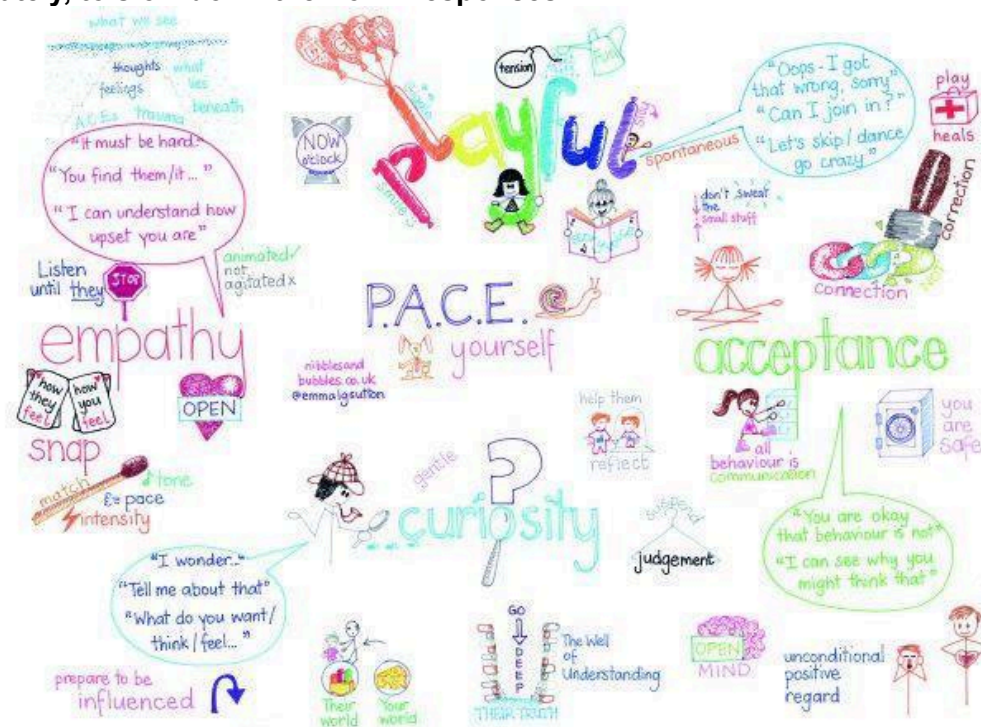 what we see
thoughts
feelings
what
lies
beneath
A.C.Es
trauma
"It must be hard."
"You find them/it... "
"I can understand how
upset you are"
Listen
until they
STOP
animated✓
not
agitated x
empathy
how
they
feel
how
you
feel
OPEN
snap
match
tone
£= pace
intensity
NOW
o'clock
tension
playful
smile
spontaneous
"Oops - I got
that wrong, sorry"
"Can I join in?"
"Let's skip / dance
go crazy"
play
heals
don't sweat
the
small stuff
correction
connection
P.A.C.E.
yourself
nibblesand
bubbles.co.uk
@emmalgsutton
acceptance
all
behaviour is
communication
you
are
safe
"You are okay
that behaviour is not"
"I can see why you
might think that"
help them
reflect
gentle
?
...curiosity
suspend
judgement
"I wonder.."
"Tell me about that"
"What do you want/
think / feel..."
prepare to be
influenced
Their
world
Your
world
GO
DEEP
The Well
of
Understanding
THEIR TRUTH
OPEN
MIND
unconditional
positive
regard